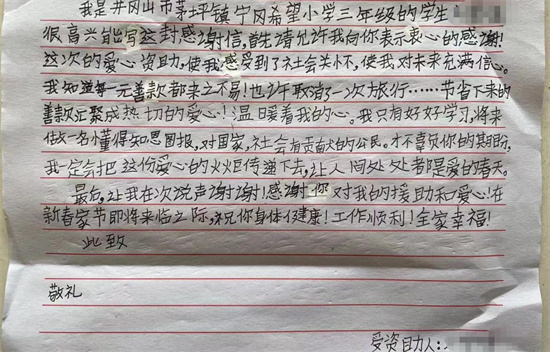 我是井冈山市茅坪镇宁冈希望小学三年级的学生
很高兴能写这封感谢信,首先请允许我向你表示衷心的感谢!
这次的爱心资助,使我感受到了社会关怀,使我对未来充满信心。
我知道每一元善款都来之不易!也许取消了一次旅行……节省下来的
善款汇聚成热切的爱心!温暖着我的心。我只有好好学习,将来
做一名懂得知恩图报,对国家,社会有贡献的公民。才不负您的期盼,
我一定会把这份爱心的火炬传递下去,让人间处处都是爱的春天。
最后,让我在次说声谢谢!感谢你对我的援助和爱心!在
新春家节即将来临之际,祝你身体健康!工作顺利!全家幸福!
此致
敬礼
受资助人: